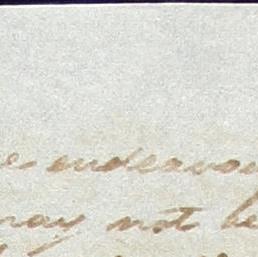 e endeavou
may not be